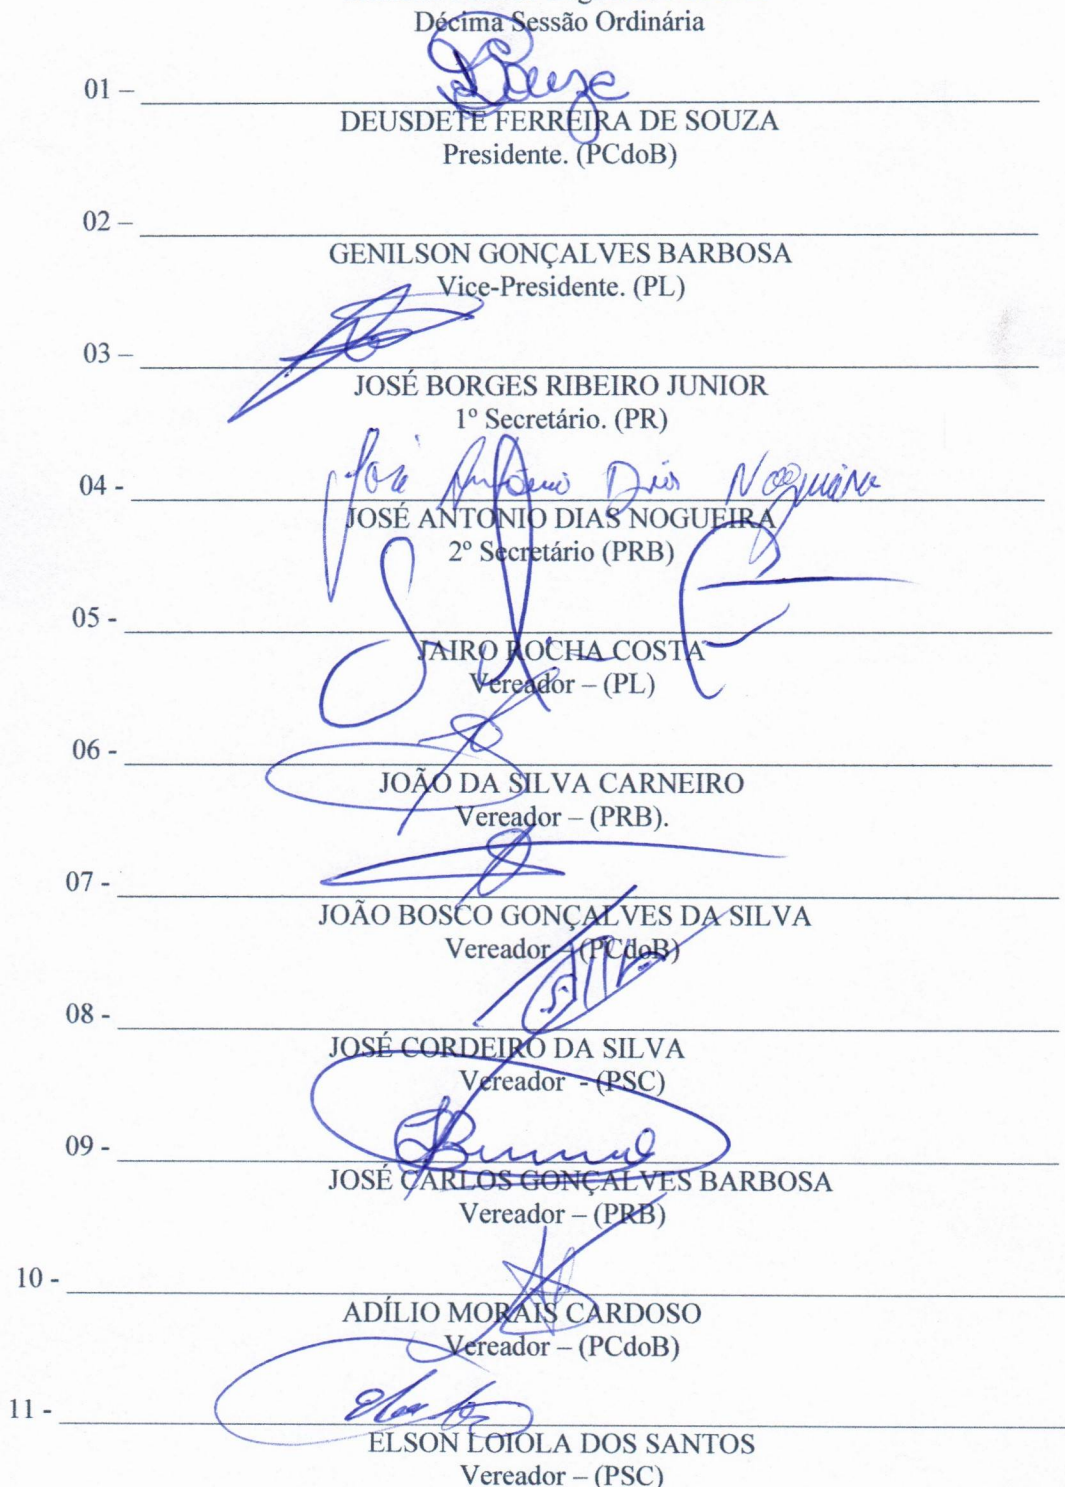 Décima Sessão Ordinária
Souza
01 –
DEUSDETE FERREIRA DE SOUZA
Presidente. (PCdoB)
02 –
GENILSON GONÇALVES BARBOSA
Vice-Presidente. (PL)
03 –
JOSÉ BORGES RIBEIRO JUNIOR
1º Secretário. (PR)
José Antônio Dias Nogueira
04 -
JOSÉ ANTONIO DIAS NOGUEIRA
2º Secretário (PRB)
05 -
JAIRO ROCHA COSTA
Vereador – (PL)
06 -
JOÃO DA SILVA CARNEIRO
Vereador – (PRB).
07 -
JOÃO BOSCO GONÇALVES DA SILVA
Vereador – (PCdoB)
08 -
JOSÉ CORDEIRO DA SILVA
Vereador - (PSC)
09 -
JOSÉ CARLOS GONÇALVES BARBOSA
Vereador – (PRB)
10 -
ADÍLIO MORAIS CARDOSO
Vereador – (PCdoB)
11 -
ELSON LOIOLA DOS SANTOS
Vereador – (PSC)